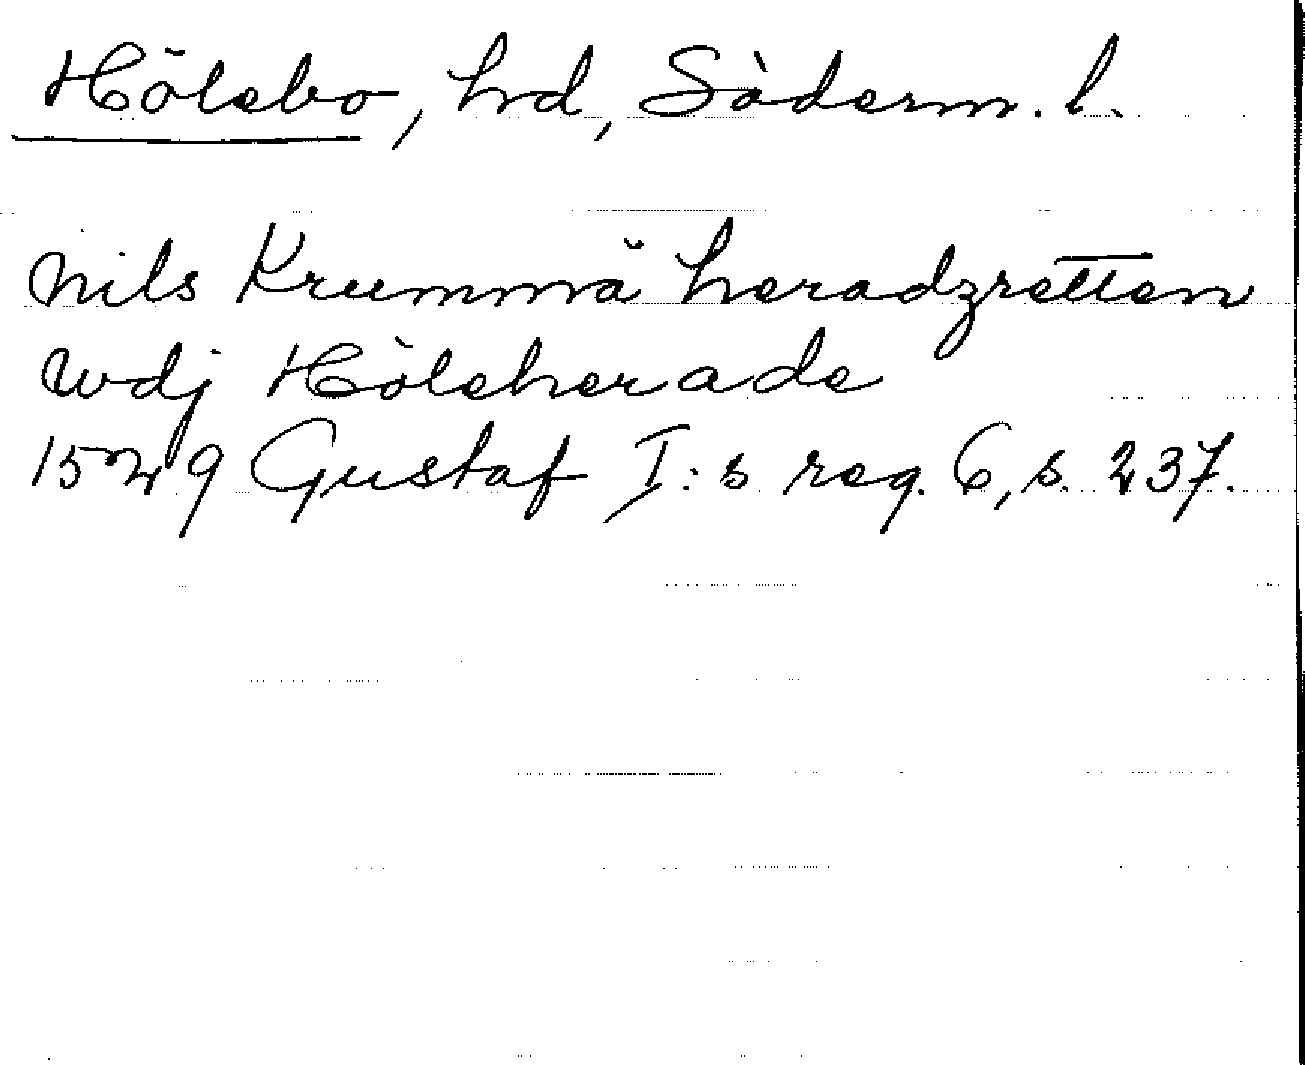 Hölebo, hd, Söderm. l.
Nils Krummä heradzretten
wdj Höleherade
1529 Gustaf I:s reg. 6, s. 237.